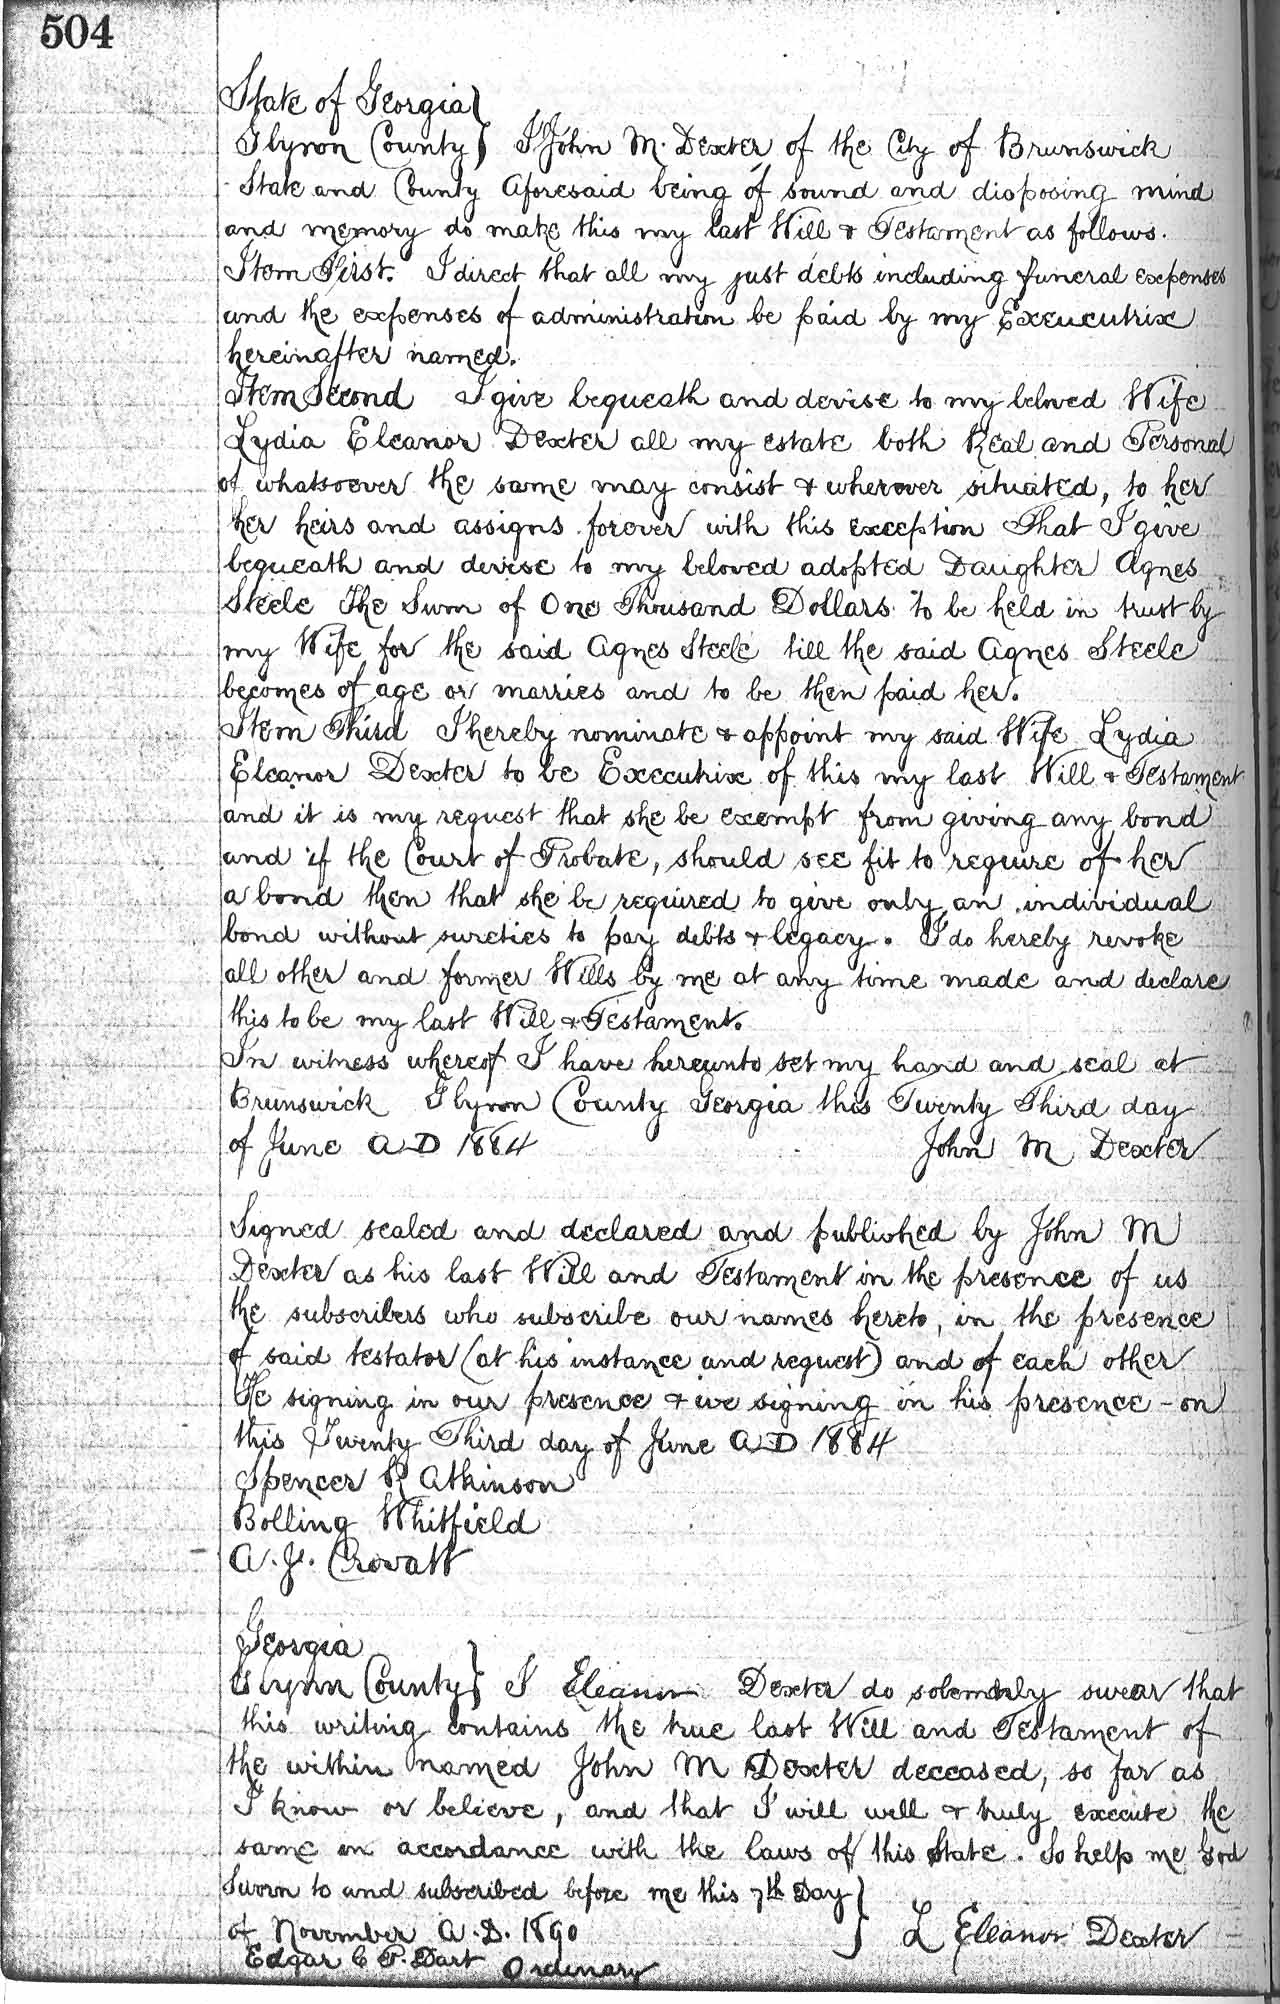 504
State of Georgia }
Glynn County } I John M. Dexter of the City of Brunswick
State and County Aforesaid being of sound and disposing mind
and memory do make this my last Will & Testament as follows.
Item First. I direct that all my just debts including funeral expenses
and the expenses of administration be paid by my Exeucutrix
hereinafter named.
Item Second I give bequeath and devise to my beloved Wife
Lydia Eleanor Dexter all my estate both Real and Personal
of whatsoever the same may consist & wherever situated, to her
her heirs and assigns forever with this exception That I give
bequeath and devise to my beloved adopted Daughter Agnes
Steele The Sum of One Thousand Dollars to be held in trust by
my Wife for the said Agnes Steele till the said Agnes Steele
becomes of age or marries and to be then paid her.
Item Third I hereby nominate & appoint my said Wife Lydia
Eleanor Dexter to be Executrix of this my last Will & Testament
and it is my request that she be exempt from giving any bond
and if the Court of Probate, should see fit to require of her
a bond then that she be required to give only an individual
bond without sureties to pay debts & legacy. I do hereby revoke
all other and former Wills by me at any time made and declare
this to be my last Will & Testament.
In witness whereof I have hereunto set my hand and seal at
Brunswick Glynn County Georgia this Twenty Third day
of June A D 1884 John M Dexter
Signed sealed and declared and published by John M
Dexter as his last Will and Testament in the presence of us
the subscribers who subscribe our names hereto, in the presence
of said testator (at his instance and request) and of each other
He signing in our presence & we signing in his presence - on
this Twenty Third day of June A D 1884
Spencer R Atkinson
Bolling Whitfield
A. J. Crovatt
Georgia
Glynn County } I Eleanor Dexter do solemnly swear that
this writing contains the true last Will and Testament of
the within named John M Dexter deceased, so far as
I know or believe, and that I will well & truly execute the
same in accordance with the laws of this State. So help me God
Sworn to and subscribed before me this 7th Day }
of November A.D. 1890 } L Eleanor Dexter
Edgar C P. Dart Ordinary